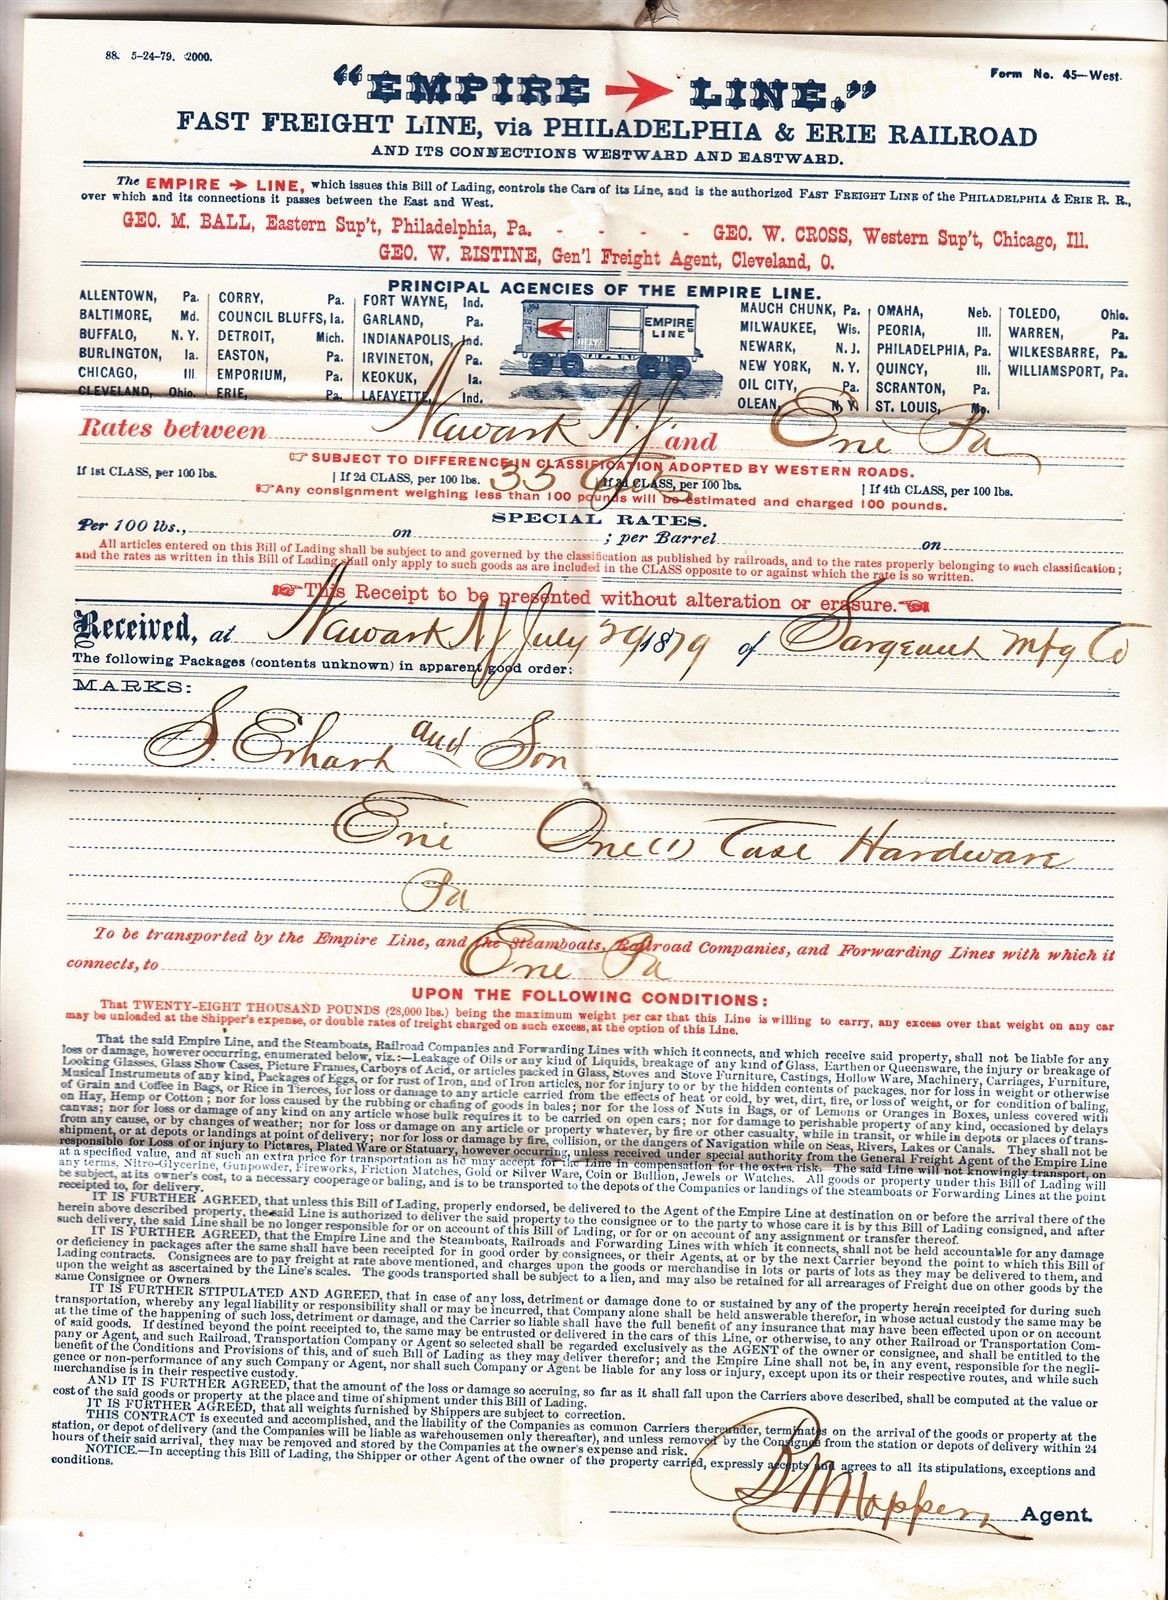 88. 5-24-79. 2000.
Form No. 45—West.
"EMPIRE LINE."
FAST FREIGHT LINE, via PHILADELPHIA & ERIE RAILROAD
AND ITS CONNECTIONS WESTWARD AND EASTWARD.
The EMPIRE LINE, which issues this Bill of Lading, controls the Cars of its Line, and is the authorized FAST FREIGHT LINE of the PHILADELPHIA & ERIE R. R.,
over which and its connections it passes between the East and West.
GEO. M. BALL, Eastern Sup't, Philadelphia, Pa. - - - - GEO. W. CROSS, Western Sup't, Chicago, Ill.
GEO. W. RISTINE, Gen'l Freight Agent, Cleveland, O.
PRINCIPAL AGENCIES OF THE EMPIRE LINE.
ALLENTOWN, Pa.
BALTIMORE, Md.
BUFFALO, N. Y.
BURLINGTON, Ia.
CHICAGO, Ill.
CLEVELAND, Ohio.
CORRY, Pa.
COUNCIL BLUFFS, Ia.
DETROIT, Mich.
EASTON, Pa.
EMPORIUM, Pa.
ERIE, Pa.
FORT WAYNE, Ind.
GARLAND, Pa.
INDIANAPOLIS, Ind.
IRVINETON, Pa.
KEOKUK, Ia.
LAFAYETTE, Ind.
EMPIRE
LINE
MAUCH CHUNK, Pa.
MILWAUKEE, Wis.
NEWARK, N. J.
NEW YORK, N. Y.
OIL CITY, Pa.
OLEAN, N. Y.
OMAHA, Neb.
PEORIA, Ill.
PHILADELPHIA, Pa.
QUINCY, Ill.
SCRANTON, Pa.
ST. LOUIS, Mo.
TOLEDO, Ohio.
WARREN, Pa.
WILKESBARRE, Pa.
WILLIAMSPORT, Pa.
Rates between Newark N.J. and Erie Pa
SUBJECT TO DIFFERENCE IN CLASSIFICATION ADOPTED BY WESTERN ROADS.
If 1st CLASS, per 100 lbs. If 2d CLASS, per 100 lbs. 35 Cts If 3d CLASS, per 100 lbs. If 4th CLASS, per 100 lbs.
Any consignment weighing less than 100 pounds will be estimated and charged 100 pounds.
SPECIAL RATES.
Per 100 lbs., on ; per Barrel on
All articles entered on this Bill of Lading shall be subject to and governed by the classification as published by railroads, and to the rates properly belonging to such classification;
and the rates as written in this Bill of Lading shall only apply to such goods as are included in the CLASS opposite to or against which the rate is so written.
This Receipt to be presented without alteration or erasure.
Received, at Newark NJ July 29 1879 of Sargeant Mfg Co
The following Packages (contents unknown) in apparent good order:
MARKS:
S. Erhart and Son
Erie One (1) Case Hardware
Pa
To be transported by the Empire Line, and the Steamboats, Railroad Companies, and Forwarding Lines with which it
connects, to Erie Pa
UPON THE FOLLOWING CONDITIONS:
That TWENTY-EIGHT THOUSAND POUNDS (28,000 lbs.) being the maximum weight per car that this Line is willing to carry, any excess over that weight on any car
may be unloaded at the Shipper's expense, or double rates of freight charged on such excess, at the option of this Line.
That the said Empire Line, and the Steamboats, Railroad Companies and Forwarding Lines with which it connects, and which receive said property, shall not be liable for any
loss or damage, however occurring, enumerated below, viz.:—Leakage of Oils or any kind of Liquids, breakage of any kind of Glass, Earthen or Queensware, the injury or breakage of
Looking Glasses, Glass Show Cases, Picture Frames, Carboys of Acid, or articles packed in Glass, Stoves and Stove Furniture, Castings, Hollow Ware, Machinery, Carriages, Furniture,
Musical Instruments of any kind, Packages of Eggs, or for rust of Iron, and of Iron articles, nor for injury to or by the hidden contents of packages, nor for loss in weight or otherwise
of Grain and Coffee in Bags, or Rice in Tierces, for loss or damage to any article carried from the effects of heat or cold, by wet, dirt, fire, or loss of weight, or for condition of baling
on Hay, Hemp or Cotton; nor for loss caused by the rubbing or chafing of goods in bales; nor for the loss of Nuts in Bags, or of Lemons or Oranges in Boxes, unless covered with
canvas; nor for loss or damage of any kind on any article whose bulk requires it to be carried on open cars; nor for damage to perishable property of any kind, occasioned by delays
from any cause, or by changes of weather; nor for loss or damage on any article or property whatever, by fire or other casualty, while in transit, or while in depots or places of trans-
shipment, or at depots or landings at point of delivery; nor for loss or damage by fire, collision, or the dangers of Navigation while on Seas, Rivers, Lakes or Canals. They shall not be
responsible for Loss of or Injury to Pictures, Plated Ware or Statuary, however occurring, unless received under special authority from the General Freight Agent of the Empire Line
at a specified value, and at such an extra price for transportation as he may accept for the Line in compensation for the extra risk. The said Line will not knowingly transport, on
any terms, Nitro-Glycerine, Gunpowder, Fireworks, Friction Matches, Gold or Silver Ware, Coin or Bullion, Jewels or Watches. All goods or property under this Bill of Lading will
be subject, at its owner's cost, to a necessary cooperage or baling, and is to be transported to the depots of the Companies or landings of the Steamboats or Forwarding Lines at the point
receipted to, for delivery.
IT IS FURTHER AGREED, that unless this Bill of Lading, properly endorsed, be delivered to the Agent of the Empire Line at destination on or before the arrival there of the
herein above described property, the said Line is authorized to deliver the said property to the consignee or to the party to whose care it is by this Bill of Lading consigned, and after
such delivery, the said Line shall be no longer responsible for or on account of this Bill of Lading, or for or on account of any assignment or transfer thereof.
IT IS FURTHER AGREED, that the Empire Line and the Steamboats, Railroads and Forwarding Lines with which it connects, shall not be held accountable for any damage
or deficiency in packages after the same shall have been receipted for in good order by consignees, or their Agents, at or by the next Carrier beyond the point to which this Bill of
Lading contracts. Consignees are to pay freight at rate above mentioned, and charges upon the goods or merchandise in lots or parts of lots as they may be delivered to them, and
upon the weight as ascertained by the Line's scales. The goods transported shall be subject to a lien, and may also be retained for all arrearages of Freight due on other goods by the
same Consignee or Owners
IT IS FURTHER STIPULATED AND AGREED, that in case of any loss, detriment or damage done to or sustained by any of the property herein receipted for during such
transportation, whereby any legal liability or responsibility shall or may be incurred, that Company alone shall be held answerable therefor, in whose actual custody the same may be
at the time of the happening of such loss, detriment or damage, and the Carrier so liable shall have the full benefit of any insurance that may have been effected upon or on account
of said goods. If destined beyond the point receipted to, the same may be entrusted or delivered in the cars of this Line, or otherwise, to any other Railroad or Transportation Com-
pany or Agent, and such Railroad, Transportation Company or Agent so selected shall be regarded exclusively as the AGENT of the owner or consignee, and shall be entitled to the
benefit of the Conditions and Provisions of this, and of such Bill of Lading as they may deliver therefor; and the Empire Line shall not be, in any event, responsible for the negli-
gence or non-performance of any such Company or Agent, nor shall such Company or Agent be liable for any loss or injury, except upon its or their respective routes, and while such
merchandise is in their respective custody.
AND IT IS FURTHER AGREED, that the amount of the loss or damage so accruing, so far as it shall fall upon the Carriers above described, shall be computed at the value or
cost of the said goods or property at the place and time of shipment under this Bill of Lading.
IT IS FURTHER AGREED, that all weights furnished by Shippers are subject to correction.
THIS CONTRACT is executed and accomplished, and the liability of the Companies as common Carriers thereunder, terminates on the arrival of the goods or property at the
station, or depot of delivery (and the Companies will be liable as warehousemen only thereafter), and unless removed by the Consignee from the station or depots of delivery within 24
hours of their said arrival, they may be removed and stored by the Companies at the owner's expense and risk.
NOTICE.—In accepting this Bill of Lading, the Shipper or other Agent of the owner of the property carried, expressly accepts and agrees to all its stipulations, exceptions and
conditions.
Agent.